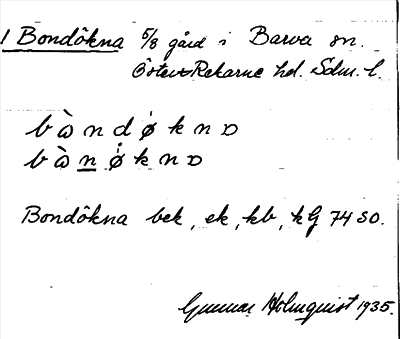 1 Bondökna 5/8 gård i Barva sn.
Österrekarne hd. Sdm. l.
bàndø̇knɒ
bàn̲ø̇knɒ
Bondökna bek, ek, kb, kG 74 SO.
Gunnar Holmquist 1935.